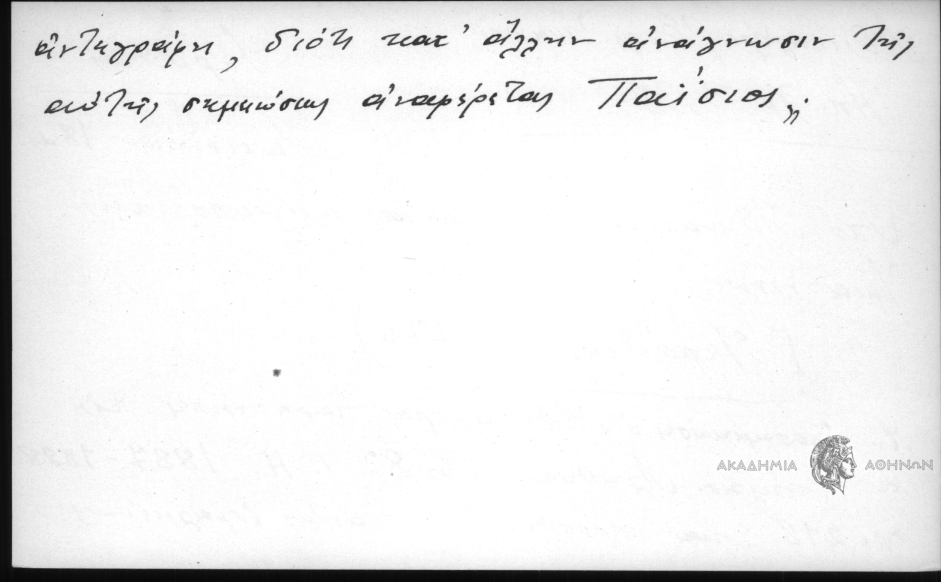 ἀντιγραφῇ, διότι κατ' ἄλλην ἀνάγνωσιν τῆς
αὐτῆς σημειώσεως ἀναφέρεται Παΐσιος
ΑΚΑΔΗΜΙΑ ΑΘΗΝΩΝ